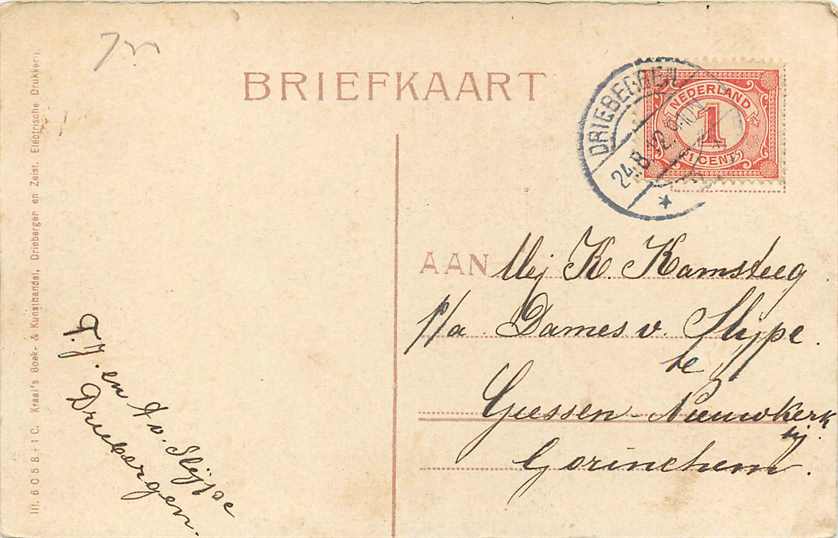 BRIEFKAART
DRIEBERGEN
24.8.12.
NEDERLAND
1
CENT
AAN Mej K. Kamsteeg
p/a Dames v. Slijpe.
te
Giessen-Nieuwkerk
bij
Gorinchem.
T. J. en A v. Slijpe
Driebergen.
Ill. 6 C 5 B.+1 C. Kraal's Boek- & Kunsthandel, Driebergen en Zeist. Electrische Drukkerij.